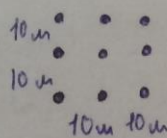 10 м
10 м
10 м 10 м